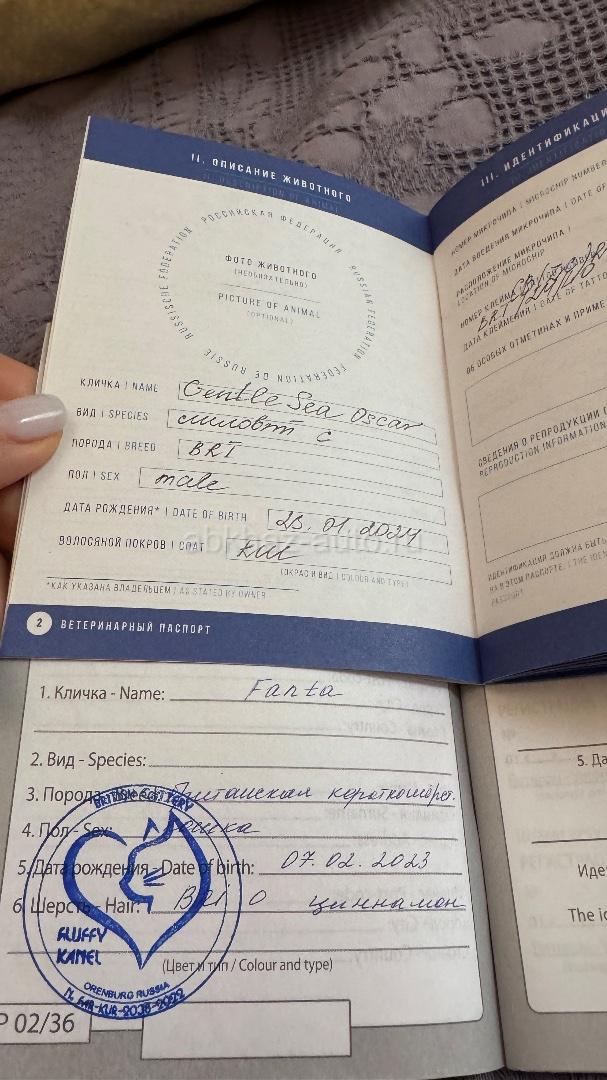 II. ОПИСАНИЕ ЖИВОТНОГО
II. DESCRIPTION OF ANIMAL
РОССИЙСКАЯ ФЕДЕРАЦИЯ RUSSIAN FEDERATION FEDERATION DE RUSSIE RUSSISCHE FÖDERATION
ФОТО ЖИВОТНОГО
(НЕОБЯЗАТЕЛЬНО)
PICTURE OF ANIMAL
(OPTIONAL)
КЛИЧКА | NAME Gentle Sea Oscar
ВИД | SPECIES
ПОРОДА | BREED BRI
ПОЛ | SEX male
ДАТА РОЖДЕНИЯ* | DATE OF BIRTH 01.2024
ВОЛОСЯНОЙ ПОКРОВ | COAT
(ОКРАС И ВИД | COLOUR AND TYPE)
*КАК УКАЗАНА ВЛАДЕЛЬЦЕМ | AS STATED BY OWNER
2 ВЕТЕРИНАРНЫЙ ПАСПОРТ
abkhaz-auto.ru
III. ИДЕНТИФИКАЦИ
НОМЕР МИКРОЧИПА | MICROCHIP NUMBER
ДАТА ВВЕДЕНИЯ МИКРОЧИПА | DATE OF
РАСПОЛОЖЕНИЕ МИКРОЧИПА |
LOCATION OF MICROCHIP
НОМЕР КЛЕЙМ
ДАТА КЛЕЙМЕНИЯ | DATE OF TATTO
ОБ ОСОБЫХ ОТМЕТИНАХ И ПРИМЕ
СВЕДЕНИЯ О РЕПРОДУКЦИИ
REPRODUCTION INFORMATION
ИДЕНТИФИКАЦИЯ ДОЛЖНА БЫТЬ
НА В ЭТОМ ПАСПОРТЕ. | THE IDEN
PASSPORT
1. Кличка - Name: Fanta
2. Вид - Species:
3. Порода - Breed: Британская короткошерст.
4. Пол - Sex: кошка
5. Дата рождения - Date of birth: 07.02.2023
6. Шерсть - Hair: Bri o циннамон
(Цвет и тип / Colour and type)
BRITISH CATTERY
FLUFFY
KANEL
ORENBURG RUSSIA
P 02/36
5. Да
Иде
The ic